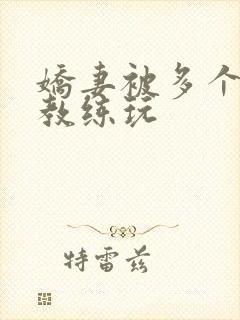 娇妻被多个
教练玩
特雷兹